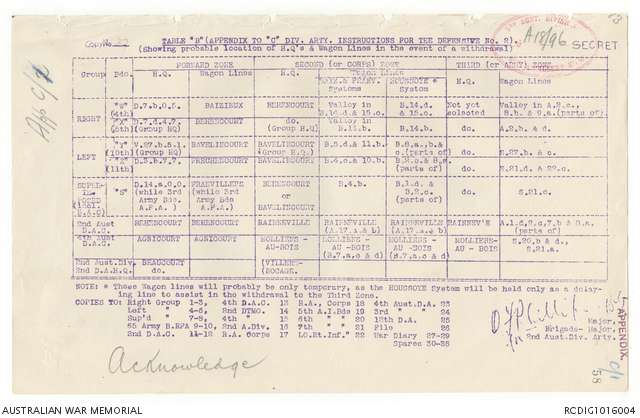 Copy No.
TABLE "B" (APPENDIX TO "C" DIV. ARTY. INSTRUCTIONS FOR THE DEFENSIVE No. 2).
(Showing probable location of H.Q's & Wagon Lines in the event of a withdrawal)
A18/96
SECRET
App C/1
Group Bde. FORWARD ZONE SECOND (or CORPS) ZONE THIRD (or ARMY) ZONE
H.Q. Wagon Lines H.Q. Wagon Lines H.Q. Wagon Lines
Systems System
RIGHT "W" (4th) D.7.b.0.5. BAIZIEUX BEHENCOURT Valley in B.14.d & 15.c. B.14.d. & 15.c. Not yet selected Valley in A.2.c., 8.b. & 9.a. (parts of)
"X" (5th) D.7.d.4.7. (Group HQ) BEHENCOURT do. (Group H.Q) Valley in B.11.b. B.14.b. do. A.2.b. & d.
LEFT "Y" (10th) V.27.b.5.1. (Group HQ) BAVELINCOURT BAVELINCOURT (Group H.Q.) B.5.d. & 11.b. B.8.a., b & c. (parts of) do. S.27.b. & c.
"Z" (11th) D.5.b.7.7. FRECHENCOURT BAVELINCOURT B.4.c. & 10.b. B.2.c. & 8.a. (parts of) do. S.21.d. & 22.c.
"S" D.14.a.0.0. (while 3rd Army Bde A.F.A.) FRANVILLERS (while 3rd Army Bde A.F.A.) BEHENCOURT or BAVELINCOURT B.4.b. B.1.d. & B.2.c. (parts of) do. S.21.c.
2nd Aust D.A.C. BEHENCOURT BEHENCOURT RAINNEVILLE RAINNEVILLE (A.17.a & b) RAINNEVILLE (A.17.a & b)
4th Aust D.A.C. AGNICOURT AGNICOURT MOLLIENS-AU-BOIS MOLLIENS-AU-BOIS (B.7.a,c & d) MOLLIENS-AU-BOIS (B.7.a,c & d) MOLLIENS-AU-BOIS S.20.b & d., S.21.a.
2nd Aust.Div. BEAUCOURT
2nd D.A.H.Q. do.
(VILLERS-BOCAGE.
NOTE: * These Wagon lines will probably be only temporary, as the HOUSSOYE System will be held only as a delaying line to assist in the withdrawal to the Third Zone.
COPIES TO: Right Group 1-3, 4th D.A.C. 13 R.A., Corps 18 4th Aust.D.A. 23
Left " 4-6, 2nd DTMO. 14 5th A.I.Bde 19 3rd " " 24
Sup'd " 7-8, 4th " 15 6th " " 20 18th D.A. 25
65 Army B.RFA 9-10, 2nd A.Div. 16 7th " " 21 File 26
2nd D.A.C. 11-12 R.A. Corps 17 LO.Rt.Inf." 22 War Diary 27-29
Spares 30-38
Major,
Brigade-Major,
2nd Aust.Div. Arty.
APPENDIX
C/1
58
Acknowledge
AUSTRALIAN WAR MEMORIAL
RCDIG1016004